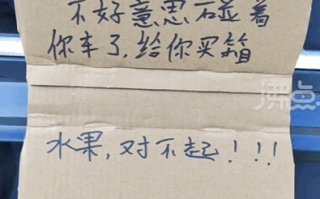 不好意思碰着
你车了,给你买箱
水果,对不起!!!
沸点